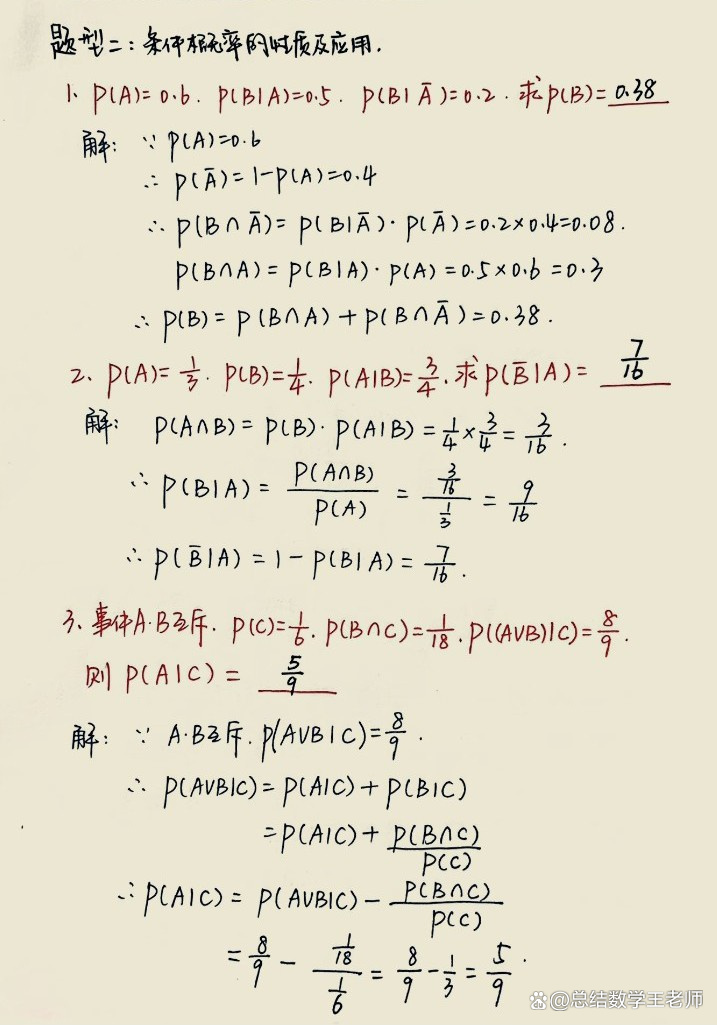 题型二:条件概率的性质及应用.
1、P(A)=0.6. P(B|A)=0.5. P(B|Ā)=0.2.求P(B)=0.38
解: ∵ P(A)=0.6
∴ P(Ā)=1-P(A)=0.4
∴ P(B∩Ā)=P(B|Ā)·P(Ā)=0.2×0.4=0.08.
P(B∩A)=P(B|A)·P(A)=0.5×0.6=0.3
∴ P(B)=P(B∩A)+P(B∩Ā)=0.38.
2、P(A)=1/3. P(B)=1/4. P(A|B)=3/4.求P(B̄|A)=7/16
解: P(A∩B)=P(B)·P(A|B)=1/4×3/4=3/16.
∴ P(B|A)=P(A∩B)/P(A)=(3/16)/(1/3)=9/16
∴ P(B̄|A)=1-P(B|A)=7/16.
3、事件A·B互斥. P(C)=1/6. P(B∩C)=1/18. P((A∪B)|C)=8/9.
则P(A|C)=5/9
解: ∵ A·B互斥. P(A∪B|C)=8/9.
∴ P(A∪B|C)=P(A|C)+P(B|C)
=P(A|C)+P(B∩C)/P(C)
∴P(A|C)=P(A∪B|C)-P(B∩C)/P(C)
=8/9-(1/18)/(1/6)=8/9-1/3=5/9.
@总结数学王老师